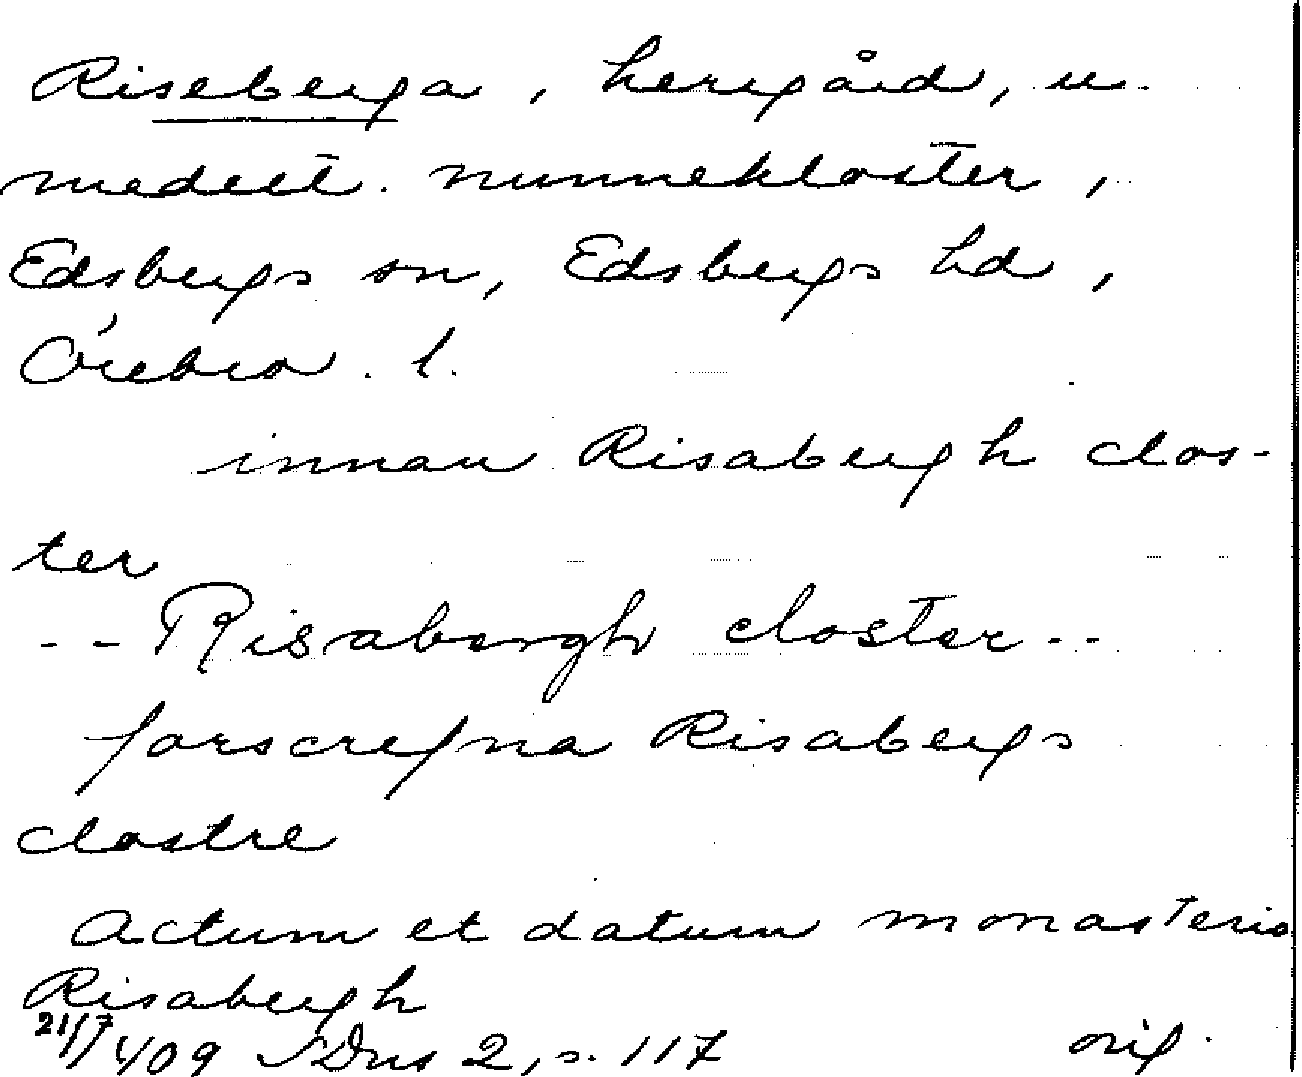 Riseberga, herrgård, u.
medelt. nunnekloster,
Edsbergs sn, Edsbergs hd,
Örebro. l.
innan Risabergh clos-
ter
-- Risabergh closter --
forscrefna Risabergs
clostre
Actum et datum monasterio
Risabergh
21/7 1409 SDns 2, s. 117 orig.